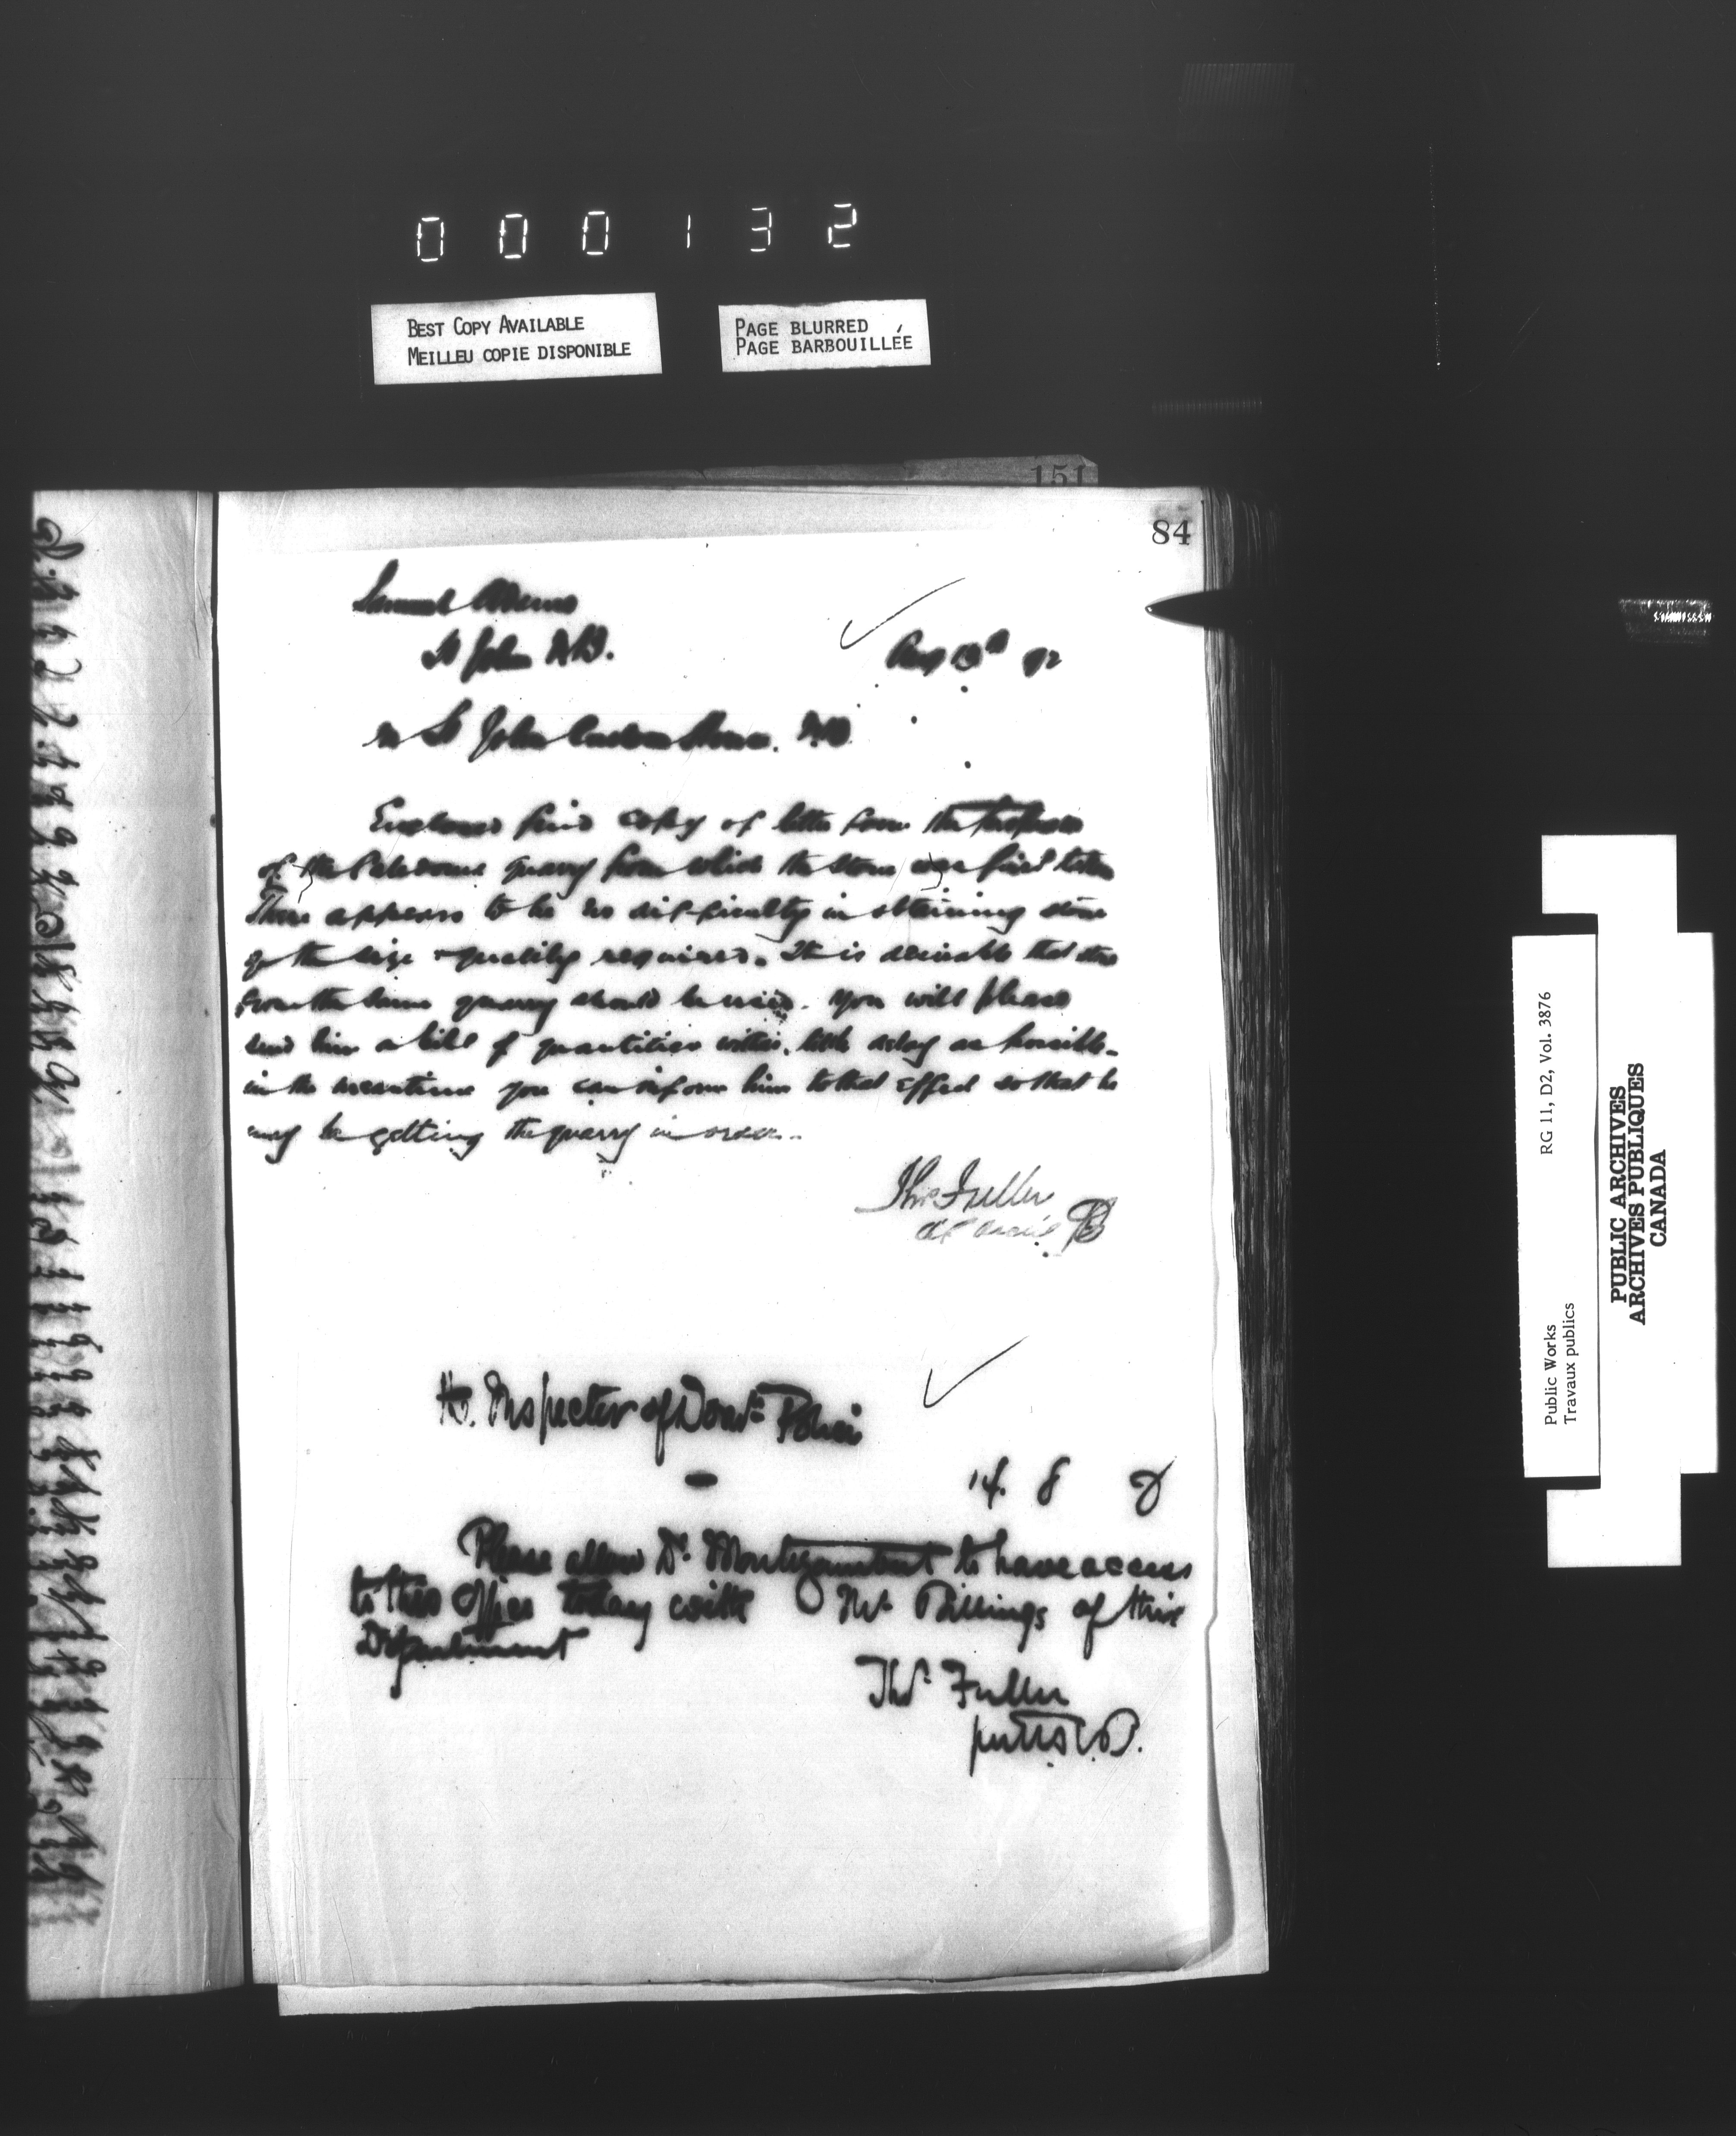 000132
BEST COPY AVAILABLE
MEILLEU COPIE DISPONIBLE
PAGE BLURRED
PAGE BARBOUILLÉE
151
84
Samuel Adams
St John N.B.
Aug 13th 92
re St John Custom House. N.B.
Enclosed find copy of letter from the
of the Caledonia quarry from which the stone was first taken
There appears to be no difficulty in obtaining stone
of the size & quality required. It is desirable that stone
from the same quarry should be used. You will please
send him a bill of quantities with as little delay as possible.
in the meantime you can inform him to that effect so that he
may be getting the quarry in order.
Thos Fuller
Inspector of Domn Police
14. 8
Please allow Dr. to have access
to this Office today with Mr. Billings of this
Department
Thos Fuller
Public Works
Travaux publics
RG 11, D2, Vol. 3876
PUBLIC ARCHIVES
ARCHIVES PUBLIQUES
CANADA